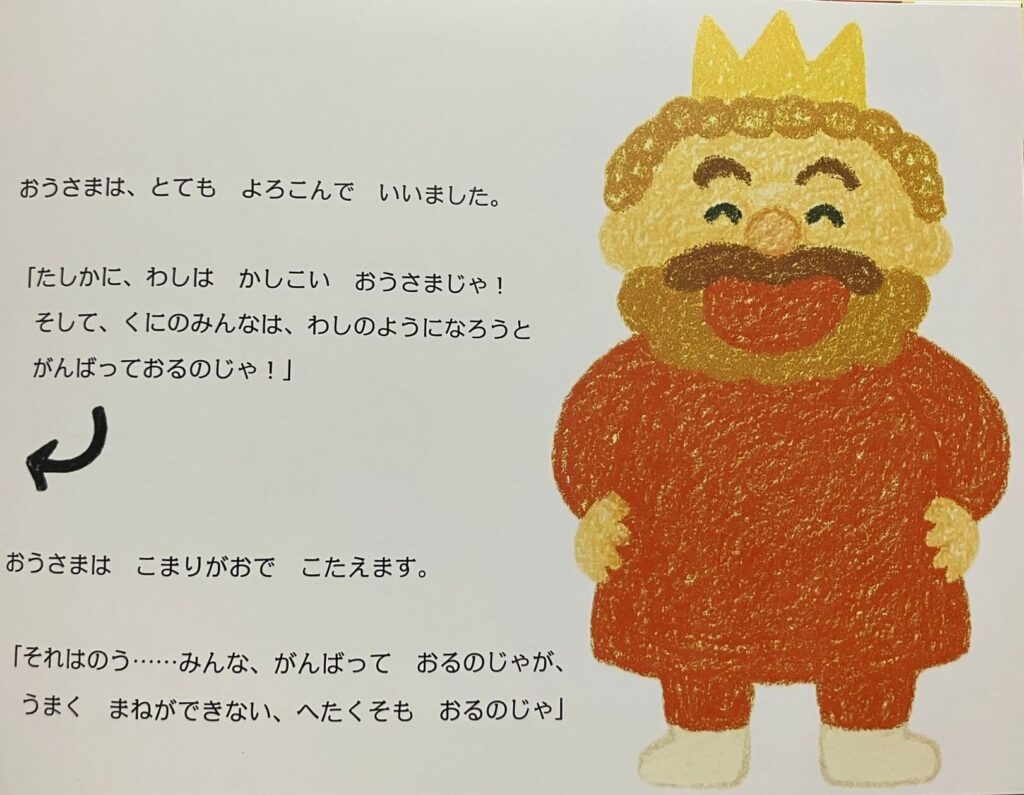 おうさまは、とても　よろこんで　いいました。
「たしかに、わしは　かしこい　おうさまじゃ！
そして、くにのみんなは、わしのようになろうと
がんばっておるのじゃ！」
おうさまは　こまりがおで　こたえます。
「それはのう……みんな、がんばって　おるのじゃが、
うまく　まねができない、へたくそも　おるのじゃ」